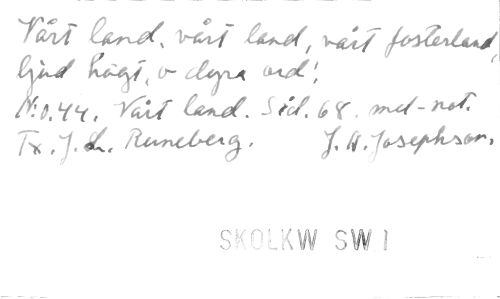 Vårt land, vårt land, vårt fosterland,
ljud högt, o dyra ord!
N:o.44. Vårt land. Sid. 68. mel-not.
Tx. J. L. Runeberg. J. A. Josephson.
SKOLKW SW 1